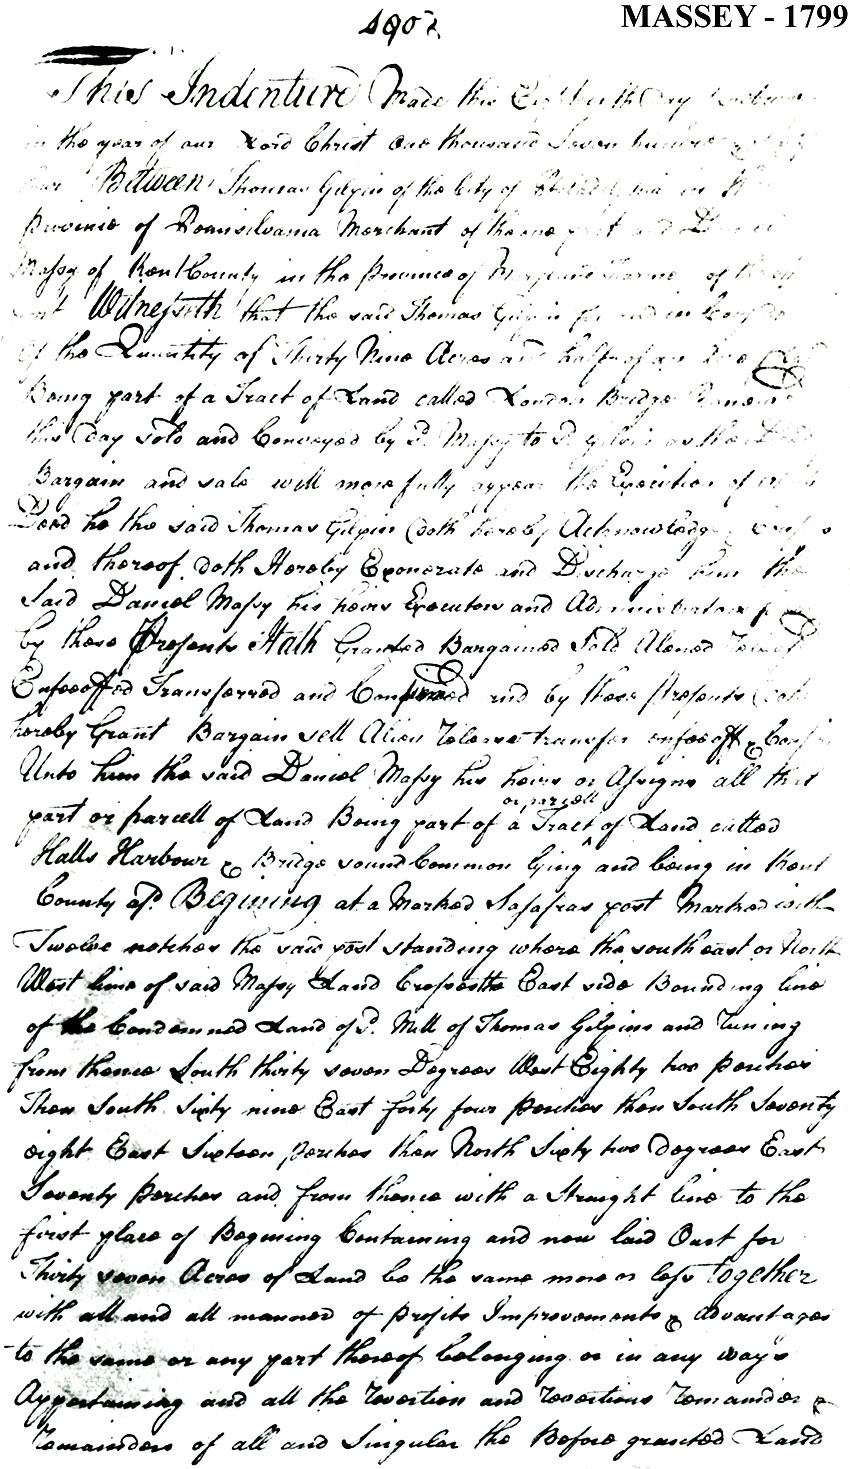 MASSEY - 1799
This Indenture Made this day
in the year of our Lord Christ one thousand Seven hundred
Between Thomas Gilpin of the City of Philadelphia in
Province of Pennsilvania Merchant of the one part and
Massy of Kent County in the Province of of the
Witnesseth that the said Thomas Gilpin for and in
Of the Quantity of Thirty Nine Acres and half of an
Being part of a Tract of Land called London Bridge
this Day Sold and Conveyed by D. Massy to as the Deed
Bargain and sale will more fully appear the Execution of
Deed he the said Thomas Gilpin doth hereby Acknowledge
and thereof doth Hereby Exonerate and Discharge him the
Said Daniel Massy his heirs Executors and Administrators
by these Presents Hath Granted Bargained Sold Aliened
Enfeoffed Transferred and Confirmed and by these Presents Doth
hereby Grant Bargain sell Alien Release transfer enfeoff &
Unto him the said Daniel Massy his heirs or Assigns all that
part or parcell of Land Being part of a Tract or parcell of Land called
Halls Harbour & Bridge sound Common lying and being in Kent
County afd. Begining at a Marked Sasafras post Marked with
Twelve notches the said post standing where the south east or North
West line of said Massy Land Crosses the East side Bounding line
of the Condemned Land of Sd. Mill of Thomas Gilpins and Runing
from thence South thirty seven Degrees West Eighty two perches
Then South Sixty nine East forty four perches then South Seventy
eight East Sixteen perches then North Sixty two Degrees East
Seventy perches and from thence with a Straight line to the
first place of Begining Containing and now laid Out for
Thirty seven Acres of Land be the same more or less Together
with all and all manner of profits Improvements & advantages
to the same or any part thereof belonging or in any ways
Appertaining and all the Revertion and Revertions Remainder &
Remainders of all and Singular the Before granted Land